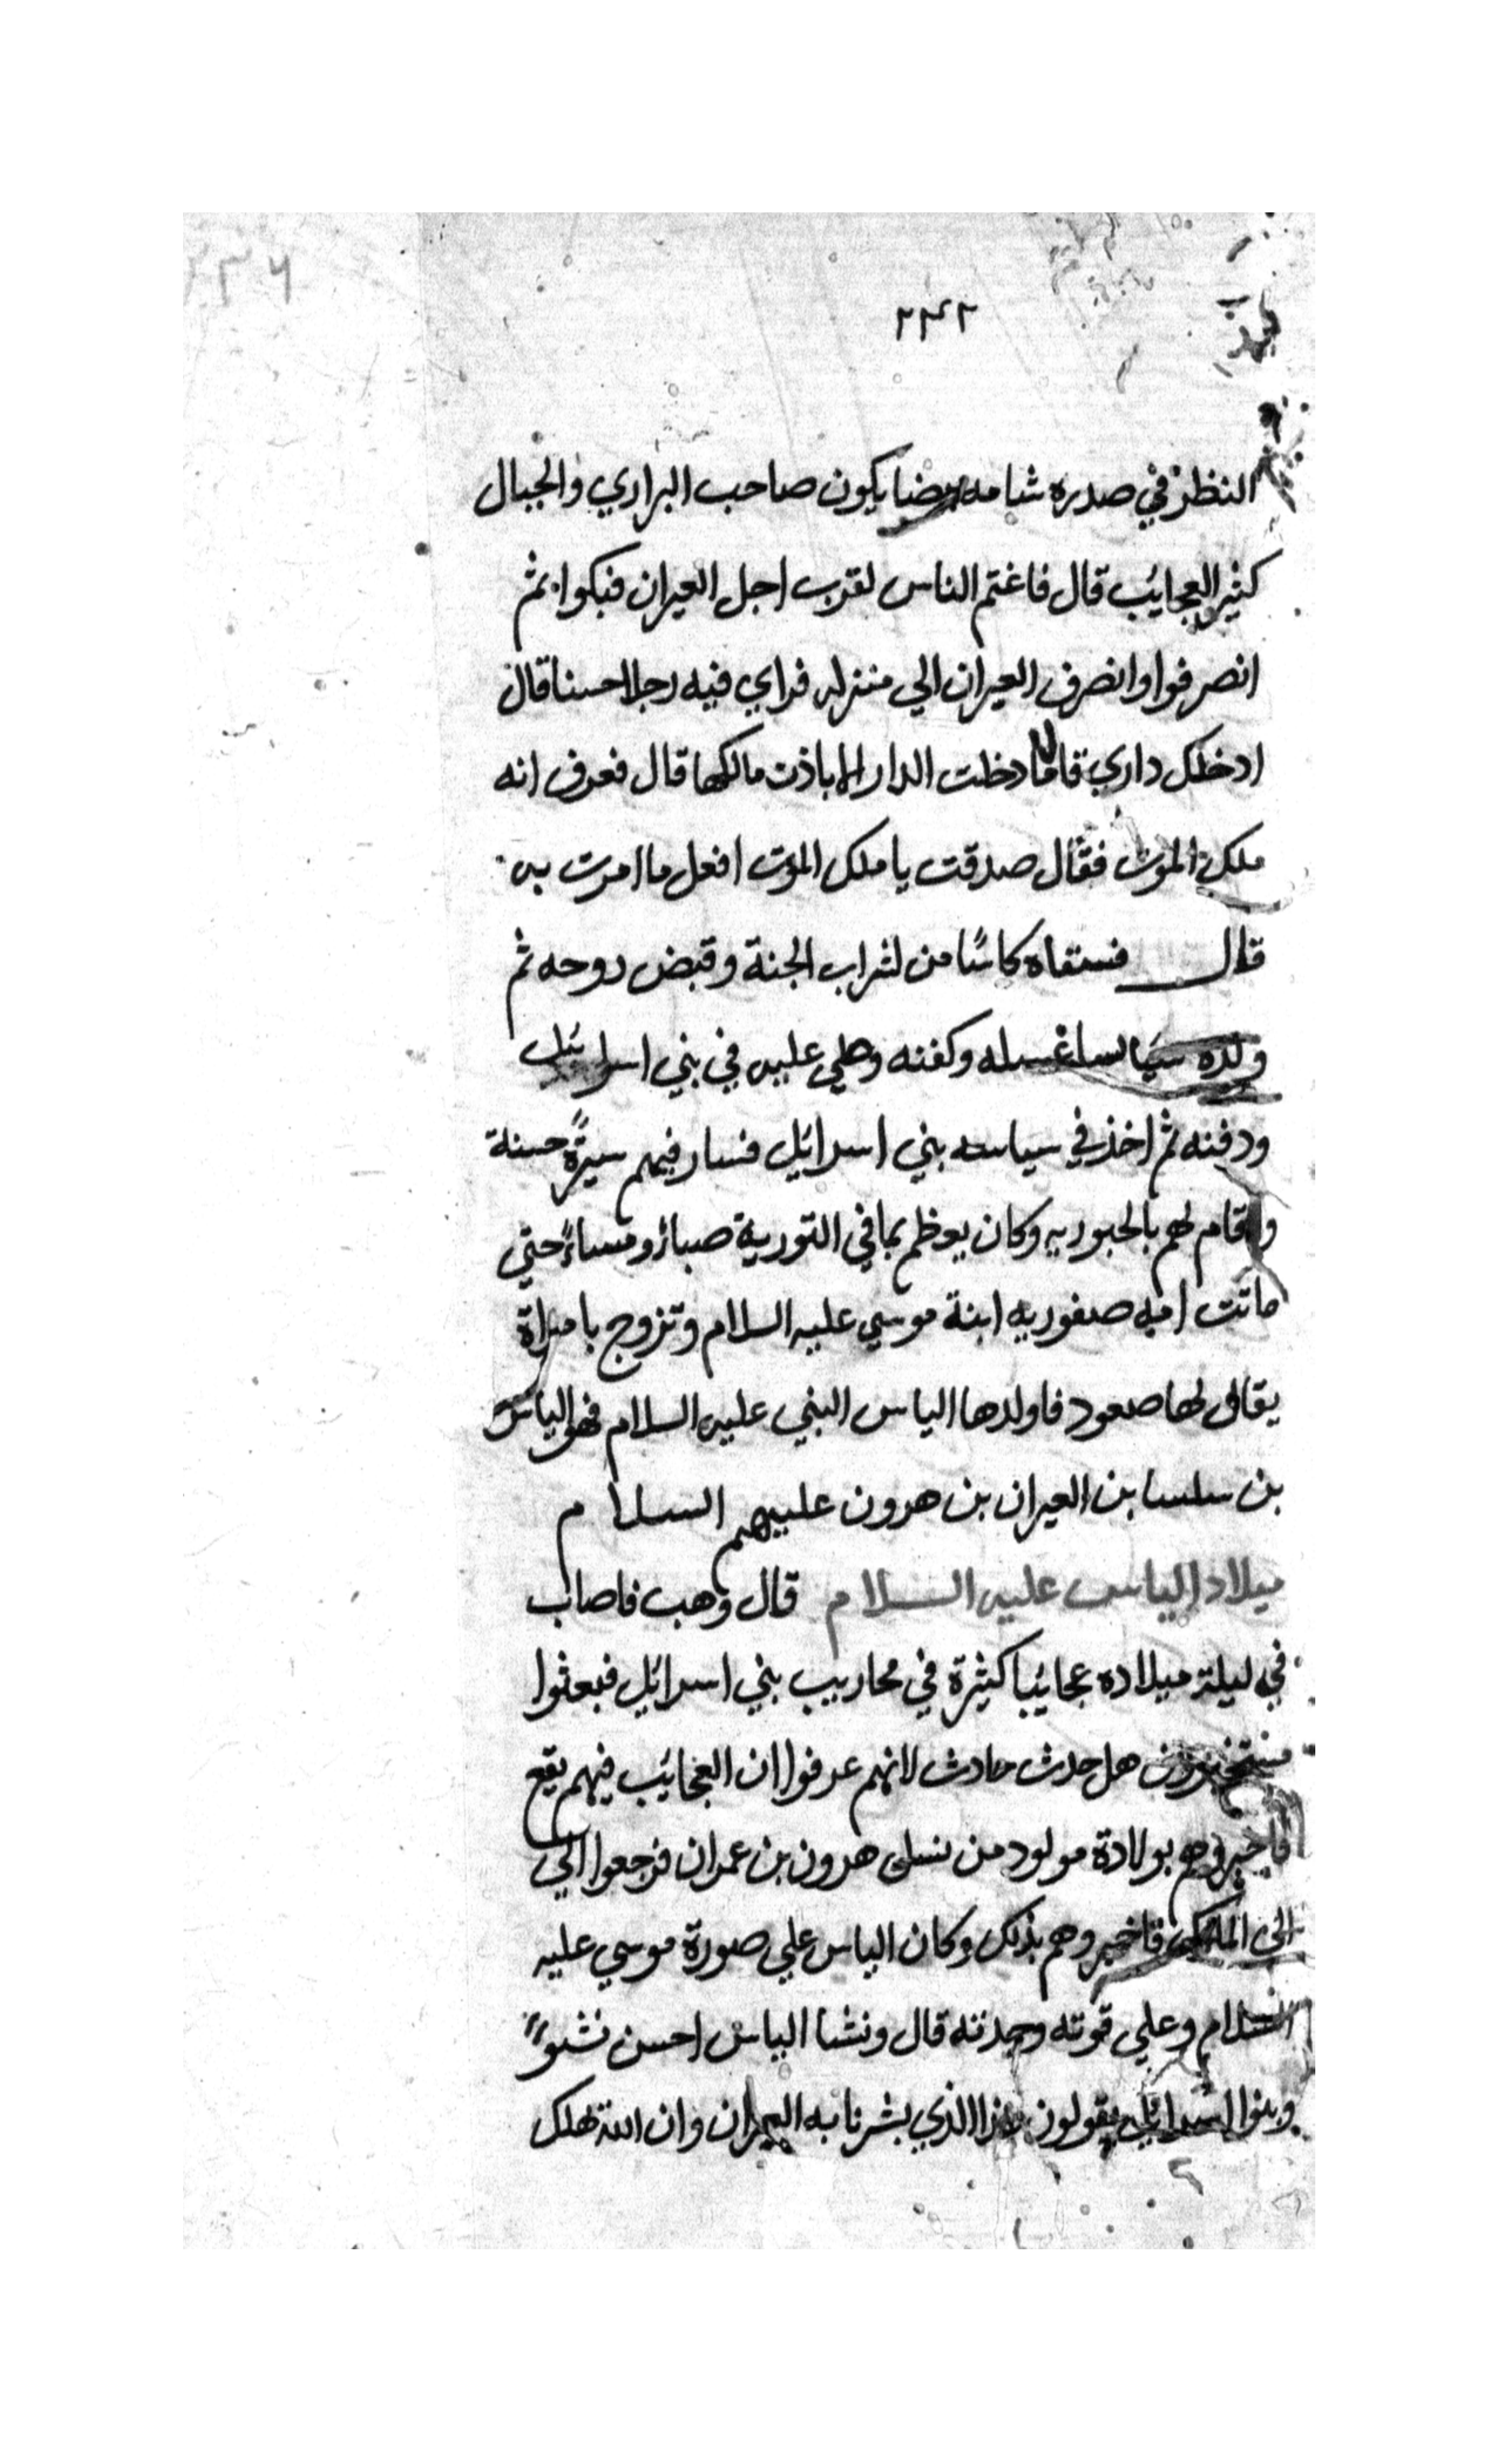 ٢٣٤٢
النظر في صدره شامه بيضا يكون صاحب البراري والجبال
كثير العجايب قال فاغتم الناس لقرب اجل العيران فبكوا ثم
انصرفوا وانصرف العيران الي منزله فراي فيه رجلا حسنا قال
ادخلك داري قال ما دخلت الدار الا باذن مالكها قال فعرف انه
ملك الموت فقال صدقت يا ملك الموت افعل ما امرت به
قال فسقاه كاسًا من شراب الجنة وقبض روحه ثم
ولده غسله وكفنه وصلي عليه في بني اسرائيل
ودفنه ثم اخذ في سياسه بني اسرائيل فسار فيهم سيرةً حسنة
واقام لهم بالحبوريه وكان يعظم بما في التورية صباءً ومساءً حتي
ماتت امه صفوريه ابنة موسي عليه السلام وتزوج بامراة
يقال لها صعود فاولدها الياس النبي عليه السلام فهو الياس
بن سلسا بن العيران بن هرون عليهم السلام
ميلاد الياس عليه السلام قال وهب فاصاب
في ليلة ميلاده عجايبا كثيرة في محاريب بني اسرائيل فبعثوا
هل حدث حادث لانهم عرفوا ان العجايب فيهم تقع
فاخبروهم بولادة مولود من نسل هرون بن عمران فرجعوا الي
الي الملك فاخبروهم بذلك وكان الياس علي صورة موسي عليه
السلام وعلي قوته وحدته قال ونشا الياس احسن نشوءً
وبنوا اسرائيل يقولون هذا الذي بشرنا به العيران وان الله تهلك